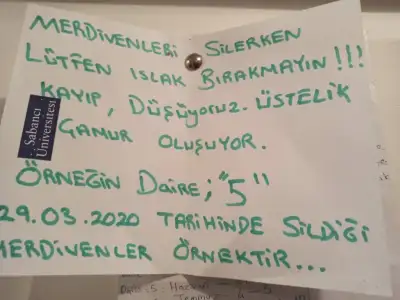 MERDİVENLERİ SİLERKEN
LÜTFEN ISLAK BIRAKMAYIN!!!
KAYIP, DÜŞÜYORUZ. ÜSTELİK
ÇAMUR OLUŞUYOR.
Sabancı
Üniversitesi
ÖRNEĞİN DAİRE; "5"
29.03.2020 TARİHİNDE SİLDİĞİ
MERDİVENLER ÖRNEKTİR...